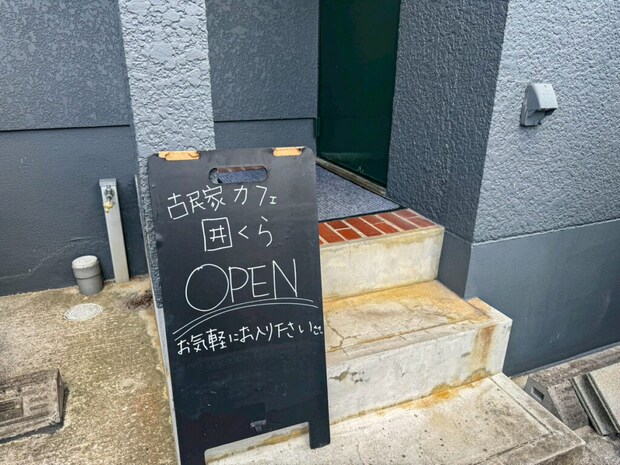 古民家カフェ
井くら
OPEN
お気軽にお入りください